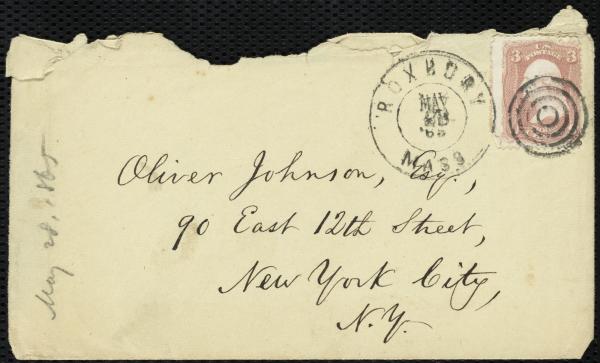 ROXBURY
MAY
28
'65
MASS
3 U.S. POSTAGE 3
Oliver Johnson, Esq.,
90 East 12th Street,
New York City,
N.Y.
May 28, 1865